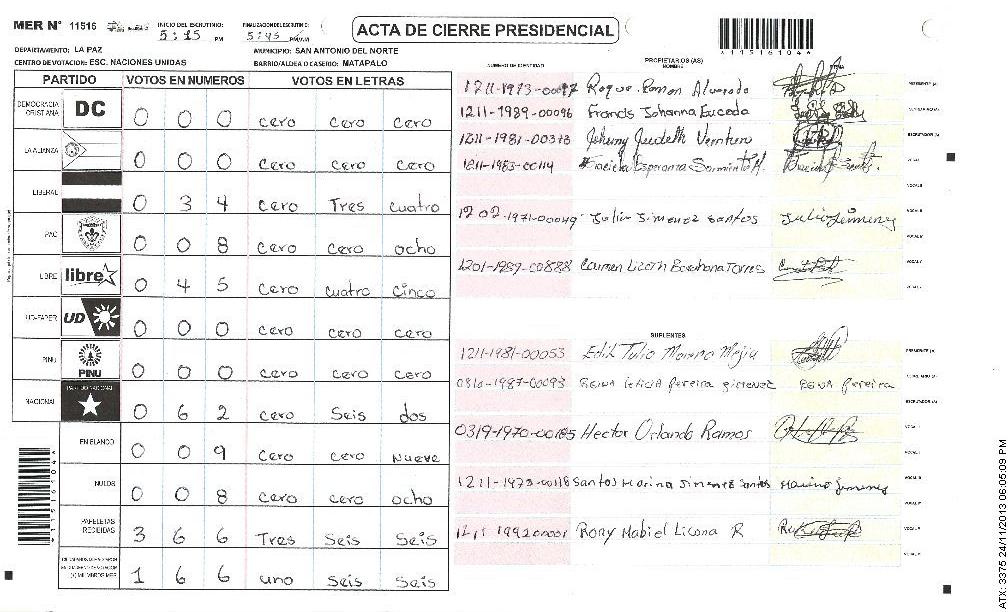 MER N° 11516 INICIO DEL ESCRUTINIO: 5:15 PM FINALIZACION ESCRUTINIO: 5:45 PM/AM ACTA DE CIERRE PRESIDENCIAL *1151610 4*
DEPARTAMENTO: LA PAZ MUNICIPIO: SAN ANTONIO DEL NORTE
CENTRO DE VOTACION: ESC. NACIONES UNIDAS BARRIO/ALDEA O CASERIO: MATAPALO
PARTIDO VOTOS EN NUMEROS VOTOS EN LETRAS
DEMOCRACIA CRISTIANA DC 0 0 0 cero cero cero
LA ALIANZA 0 0 0 cero cero cero
LIBERAL 0 3 4 cero Tres cuatro
PAC 0 0 8 cero cero ocho
LIBRE libre 0 4 5 cero cuatro cinco
UD-FAPER UD 0 0 0 cero cero cero
PINU PINU 0 0 0 cero cero cero
NACIONAL PARTIDO NACIONAL 0 6 2 cero Seis dos
EN BLANCO 0 0 9 cero cero nueve
NULOS 0 0 8 cero cero ocho
PAPELETAS RECIBIDAS 3 6 6 Tres Seis Seis
1 6 6 uno Seis Seis
NUMERO DE IDENTIDAD PROPIETARIOS (AS) NOMBRE FIRMA
Roque Ramon Alvarado PRESIDENTE (A)
1211-1989-00096 Francis Johanna Euceda SECRETARIO (A)
ESCRUTADOR (A)
1211-1983-00114 Esperanza Sarmiento M. VOCAL I
VOCAL II
1202-1971-00049 Julio Jimenez Santos Julio Jimenez VOCAL III
VOCAL IV
1201-1989-00888 Carmen Lizeth Torres VOCAL V
SUPLENTES
1211-1981-00053 Edik Tulio Moreno Mejia PRESIDENTE (A)
0816-1987-00093 Reina leticia pereira gimenez Reina pereira SECRETARIO (A)
ESCRUTADOR (A)
0319-1970-00185 Hector Orlando Ramos VOCAL I
VOCAL II
1211-1973-00118 Santos Marina Jimenez Santos Marina Jimenez VOCAL III
Rony Mabiel Licona R
ATX: 3375 24/11/2013 06:05:09 PM